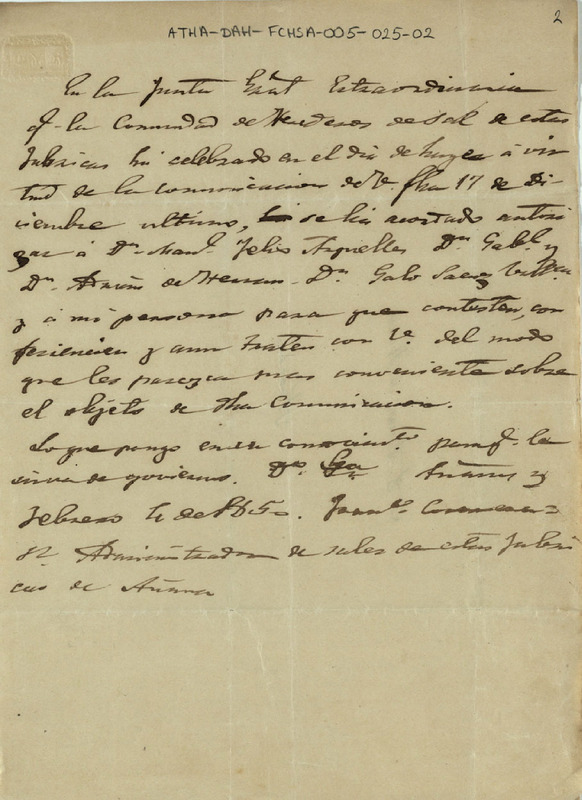 2
ATHA-DAH-FCHSA-005-025-02
En la Junta Gral Extraordinaria
q.e la Comunidad de Herederos de Sal de estas
Fabricas ha celebrado en el dia de hoy a vir
tud de la comunicacion de V. fha 17 de Di
ciembre ultimo, se ha acordado autori
zar á Dn. Manl. Felix Arguelles Dn. Gabl. y
Dn. de Herran Dn. Galo Saez
y á mi persona para que contesten, con
ferencien y aun traten con V. del modo
que les parezca mas conveniente sobre
el objeto de dha Comunicacion.
Lo que pongo en su conocimto. para q.e le
sirva de govierno. Añana y
Febrero 4 de 1850.
Sr. Administrador de sales de estas Fabri
cas de Añana